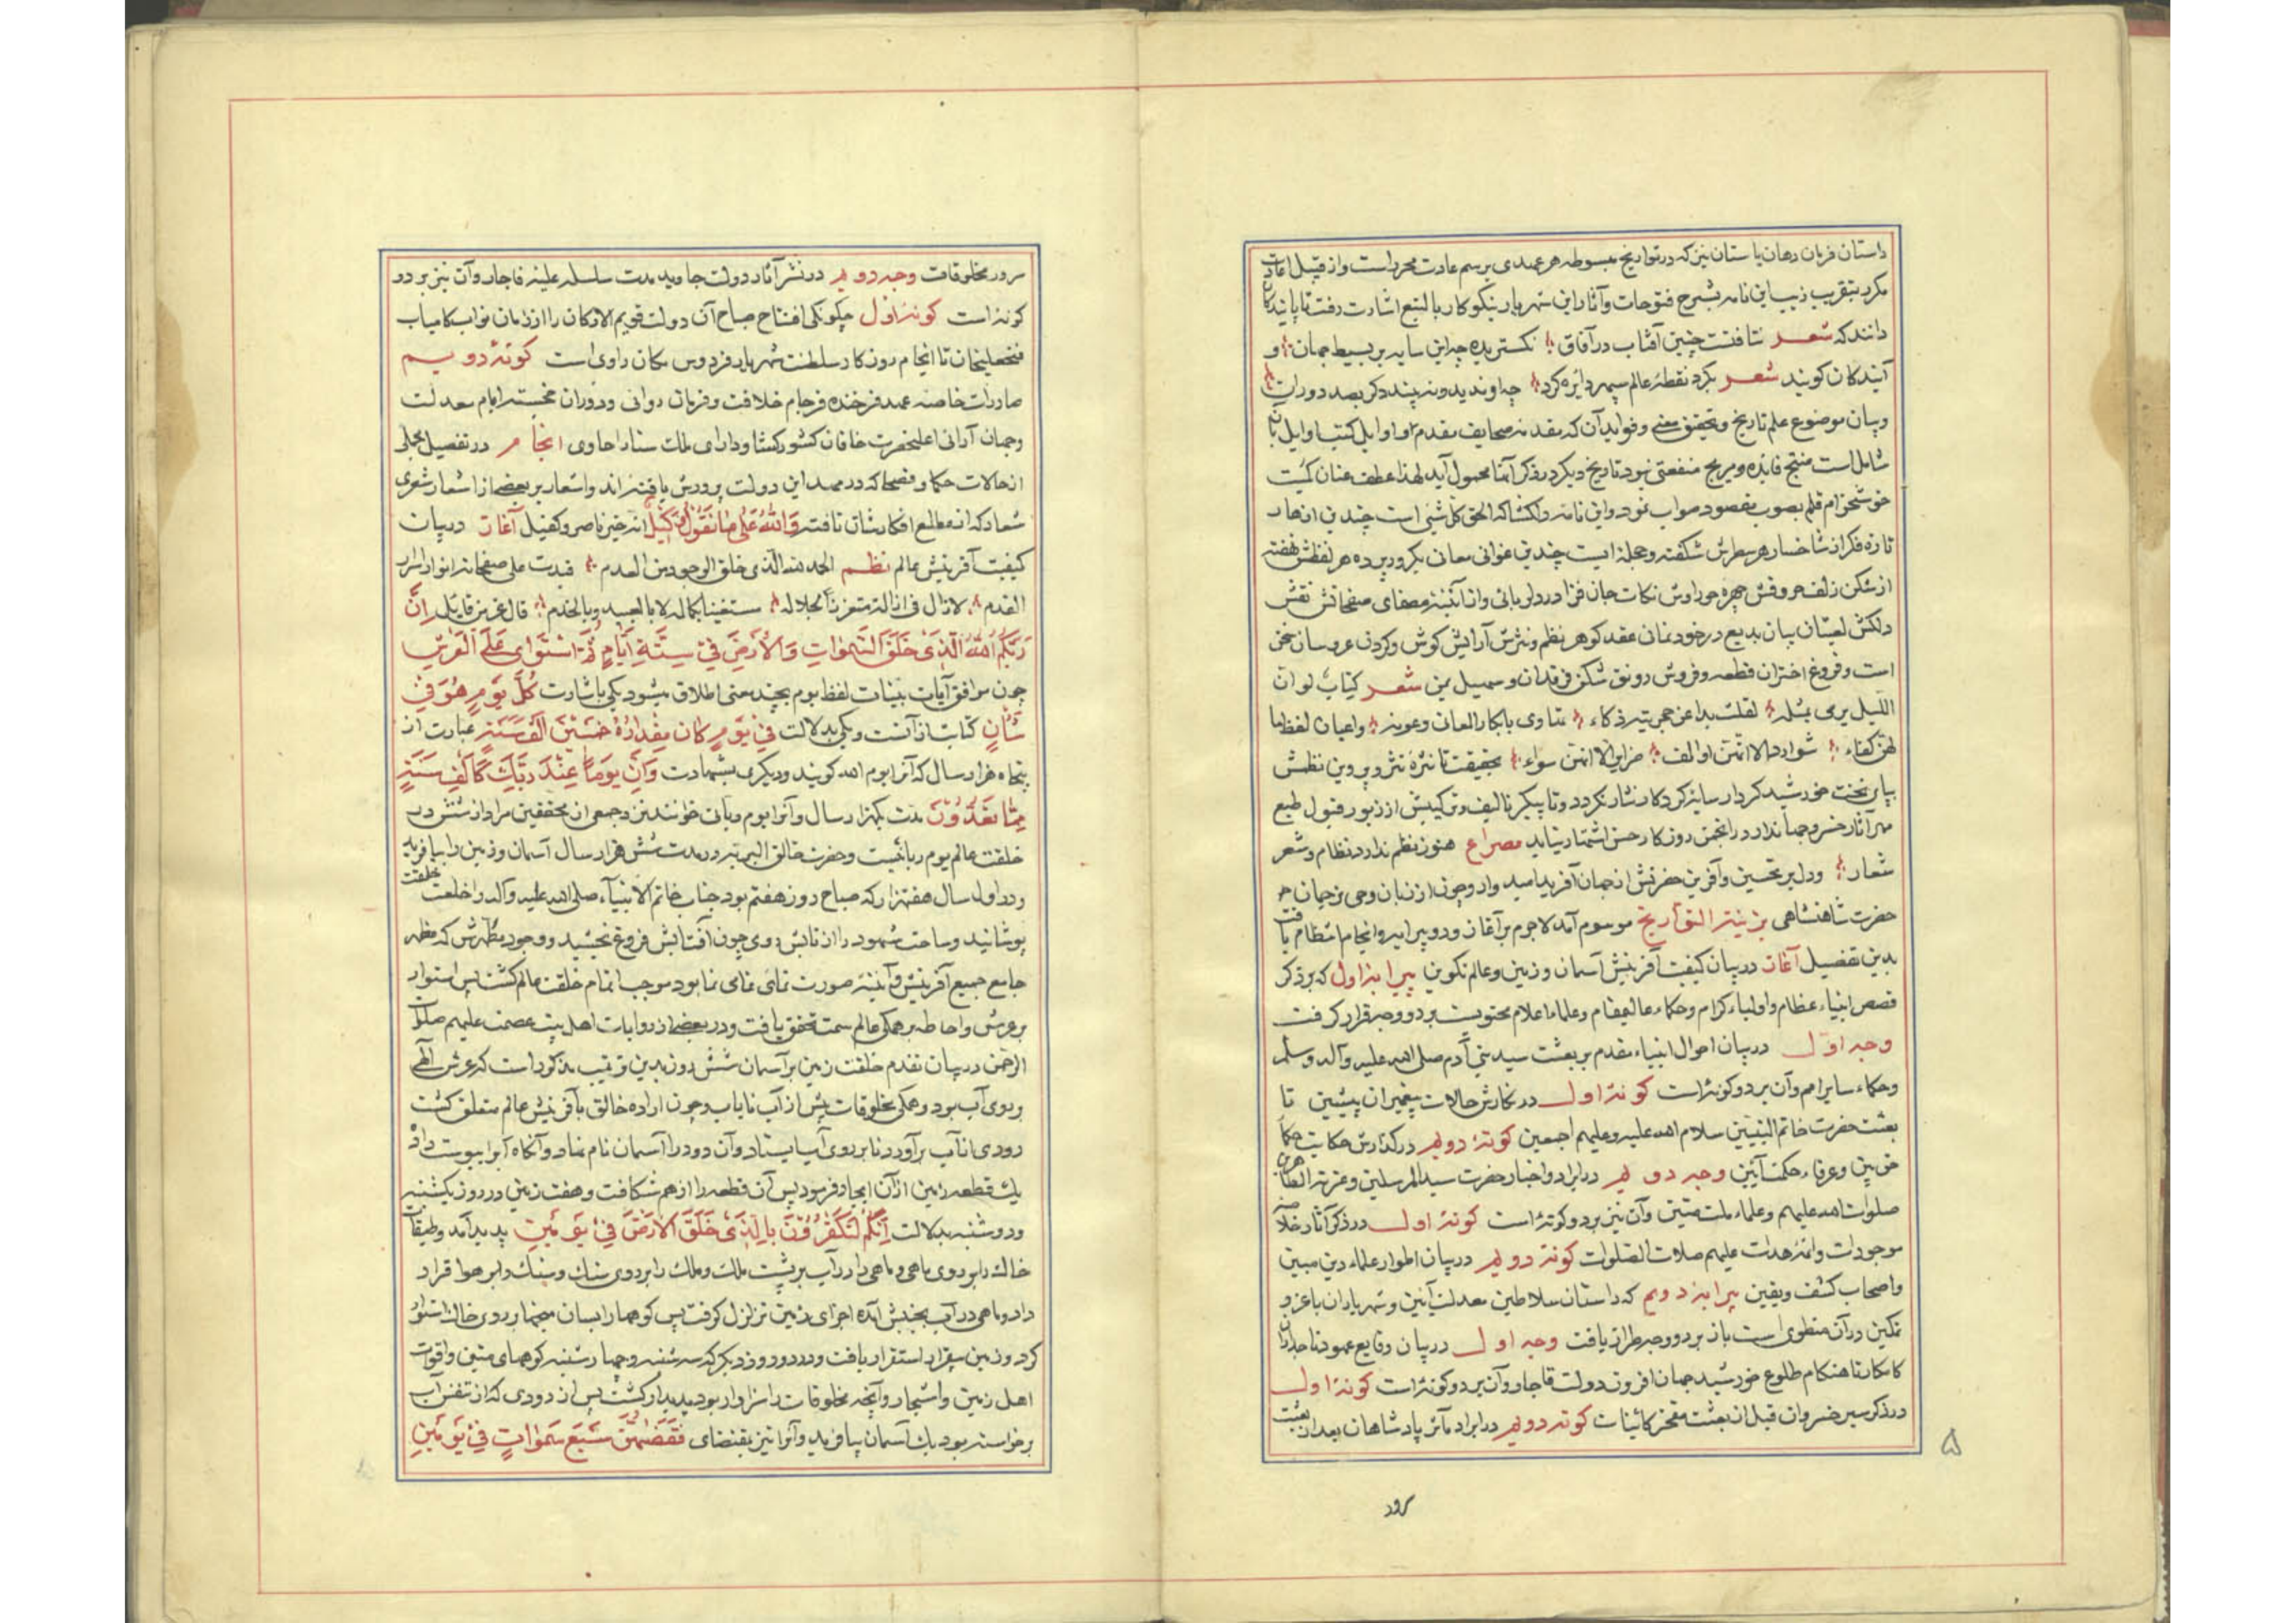 داستان فرمان دهان باستان نیز که در تواریخ مبسوطه هر عهدی برسم عادت محرر است و از قبیل اعادت
مکرر بتقریب زیب این نامه بشرح فتوحات و آثار این شهریار نیکوکار بالتبع اشارت رفت تا پایندکان
دانند که شعر نتافتست چنین آفتاب در آفاق نکستریده چه این سایه بر بسیط جهان و
آیندکان کویند شعر بکرد نقطه عالم سپهر دایره کرد چه او ندیده و نه بیند دکر بصد دوران
و بیان موضوع علم تاریخ و تحقیق معنی و فواید آن که مقدمه صحایف مقدم و اوایل کتب اوایل بآن
شامل است منتج فایده و مربح منفعتی نبود تا ریخ دیکر در ذکر آنها محمول آید لهذا عطف عنان کمیت
خوشخرام قلم بصوب مقصود صواب نمود و این نامه دلکشا که الحق کلشنی است چندین ازهار
تازه فکر از شاخسار هر سطرش شکفته و حجله ایست چندین غوانی معانی بکر در پرده هر لفظش نهفته
از شکن زلف حروفش چهره حور اوش نکات جان فزا در دلربائی و از آئینه مصفای صفحاتش نقش
دلکش لعبتان بیان بدیع در خودنمائی عقد کوهر نظم و نثرش آرایش کوش و کردن عروسان سخن
است و فروغ اختران قطعه و فروش رونق شکن فرقدان و سهیل یمن شعر کتاب لو ان
اللیل یرمی بمثله لقلت بدا عن حجرتیه ذکاء تهاوی بابکار المعانی و عونه واعیان لفظ ما
لهن کفاء شوارد الا انهن اوالف غرایر الا انهن سواء بحقیقت تا نثره نثر و پروین نظمش
بپای تخت خورشید کردار سایه کردکار نثار نکردد و تا پیکر تالیف و ترکیبش از زیور قبول طبع
مهر آثار خسرو جهاندار در انجمن روزکار حسن اشتهار نیابد مصراع هنوز نظم ندارد نظام و شعر
شعار و دلبر تحسین و آفرین حضرتش از جهان آفرید امید وار و چون از زبان وحی ترجمان
حضرت شاهنشاهی بزینة التواریخ موسوم آمد لاجرم بر آغاز و دو پیرایه و انجام انتظام یافت
بدین تفصیل آغاز در بیان کیفیت آفرینش آسمان و زمین و عالم تکوین پیرایه اول که بر ذکر
قصص انبیاء عظام و اولیاء کرام و حکماء عالیمقام و علماء اعلام محتویست بر دو وجه قرار کرفت
وجه اول در بیان احوال انبیاء مقدم بر بعثت سید بنی آدم صلی الله علیه و آله و سلم
و حکماء سایر امم و آن بر دو کونه است کونه اول در نکارش حالات پیغمبران پیشین تا
بعثت حضرت خاتم النبیین سلام الله علیه و علیهم اجمعین کونه دویم در کذارش حکایت حکماء
خرد بین و عرفاء حکمت آئین وجه دویم در ایراد و اخبار حضرت سید المرسلین و عترته الطاهرین
صلوات الله علیهم و علماء ملت متین و آن نیز بر دو کونه است کونه اول در ذکر آثار خلاصه
موجودات و ائمه هدات علیهم صلات الصلوات کونه دویم در بیان اطوار علماء دین مبین
و اصحاب کشف و یقین پیرایه دویم که داستان سلاطین معدلت آئین و شهریاران با عز و
تمکین در آن منطوی است باز بر دو وجه طراز یافت وجه اول در بیان وقایع عهود تاجداران
کامکار تا هنکام طلوع خورشید جهان افروز دولت قاجار و آن بر دو کونه است کونه اول
در ذکر سیر خسروان قبل از بعثت مفخر کائینات کونه دویم در ایراد مآثر پادشاهان بعد از بعثت
سرور
۵
سرور مخلوقات وجه دویم در نشر آثار دولت جاوید مدت سلسله علیه قاجار و آن نیز بر دو
کونه است کونه اول چکونکی افتتاح صباح آن دولت قویم الارکان را از زمان نواب کامیاب
فتحعلیخان تا انجام روزکار سلطنت شهریار فردوس مکان راوی است کونه دویم
صادرات خاصه عهد فرخنده فرجام خلافت و فرمان روائی و دوران خجسته ایام معدلت
و جهان آرائی اعلیحضرت خاقان کشورکشا و دارای ملک ستانرا حاوی انجام در تفصیل مجملی
از حالات حکما و فصحا که در مهد این دولت پرورش یافته اند و اشعار بر بعضی از اشعار شعری
شعار که از مطالع افکارشان تافته والله علی ما نقول وکیل انه خیر ناصر و کفیل آغاز در بیان
کیفیت آفرینش عالم نظم الحمد لله الذی خلق الوجود من العدم فبدت علی صفحاته انوار اسرار
القدم لا زال فی ازالته متعززا بجلاله مستغنیا بکماله لا بالعبید و بالخدم قال عز من قایل ان
ربکم الله الذی خلق السموات والارض فی ستة ایام ثم استوی علی العرش
چون موافق آیات بینات لفظ یوم بچند معنی اطلاق میشود یکی باشارت کل یوم هو فی
شان کنایت از آنست و یکی بدلالت فی یوم کان مقداره خمسین الف سنة عبارت از
پنجاه هزار سال که آنرا یوم الله کویند و دیکری بشهادت وان یوما عند ربک کالف سنة
مما تعدون مدت یکهزار سال و آنرا یوم ربانی خوانند نزد جمعی از محققین مراد از شش در
خلقت عالم یوم ربانیست و حضرت خالق البریه در مدت شش هزار سال آسمان و زمین را بیافرید
و در اول سال هفتهزار که صباح روز هفتم بود جناب خاتم الانبیآء صلی الله علیه و آله را خلعت خلقت
پوشانید و ساحت شهود را از تابش روی چون آفتابش فروغ بخشید و وجود مطهرش که مظهر
جامع جمیع آفرینش و آئینه صورت نمای نمای نما بود موجب اتمام خلقت عالم کشت پس استوار
بر عرش و احاطه بر همکی عالم سمت تحقق یافت و در بعضی از روایات اهل بیت عصمت علیهم صلوات
الرحمن در بیان تقدم خلقت زمین بر آسمان شش روز بدین ترتیب مذکور است که عرش الهی
بروی آب بود و همکی مخلوقات پیش از آب نایاب و چون اراده خالق بآفرینش عالم متعلق کشت
دودی از آب برآورد تا بر روی آب ایستاد و آن دود را آسمان نام نهاد و آنکاه آبرا یبوست داد
یک قطعه زمین از آن ایجاد فرمود پس آن قطعه را از هم شکافت و هفت زمین در روز یکشنبه
و دوشنبه بدلالت انکم لتکفرون بالذی خلق الارض فی یومین پدید آمد و طبقات
خاک را بر روی ماهی و ماهی را در آب بر پشت ملک و ملک را بر روی سنک و سنک را بر هوا قرار
داد و ماهی در آب بجنبش آمده اجزای زمین تزلزل کرفت پس کوهها را بسان میخها بر روی خاک استوار
کرد و زمین بیقرار استقرار یافت و در دو روز دیکر که سه شنبه و چهار شنبه کوههای متین و اقوات
اهل زمین و اشجار و آنچه مخلوقات را سزاوار بود پدیدار کشت پس از دودی که از تنفس آب
برخواسته بود یک آسمان بیافرید و آنرا نیز بمقتضای فقضهن سبع سموات فی یومین